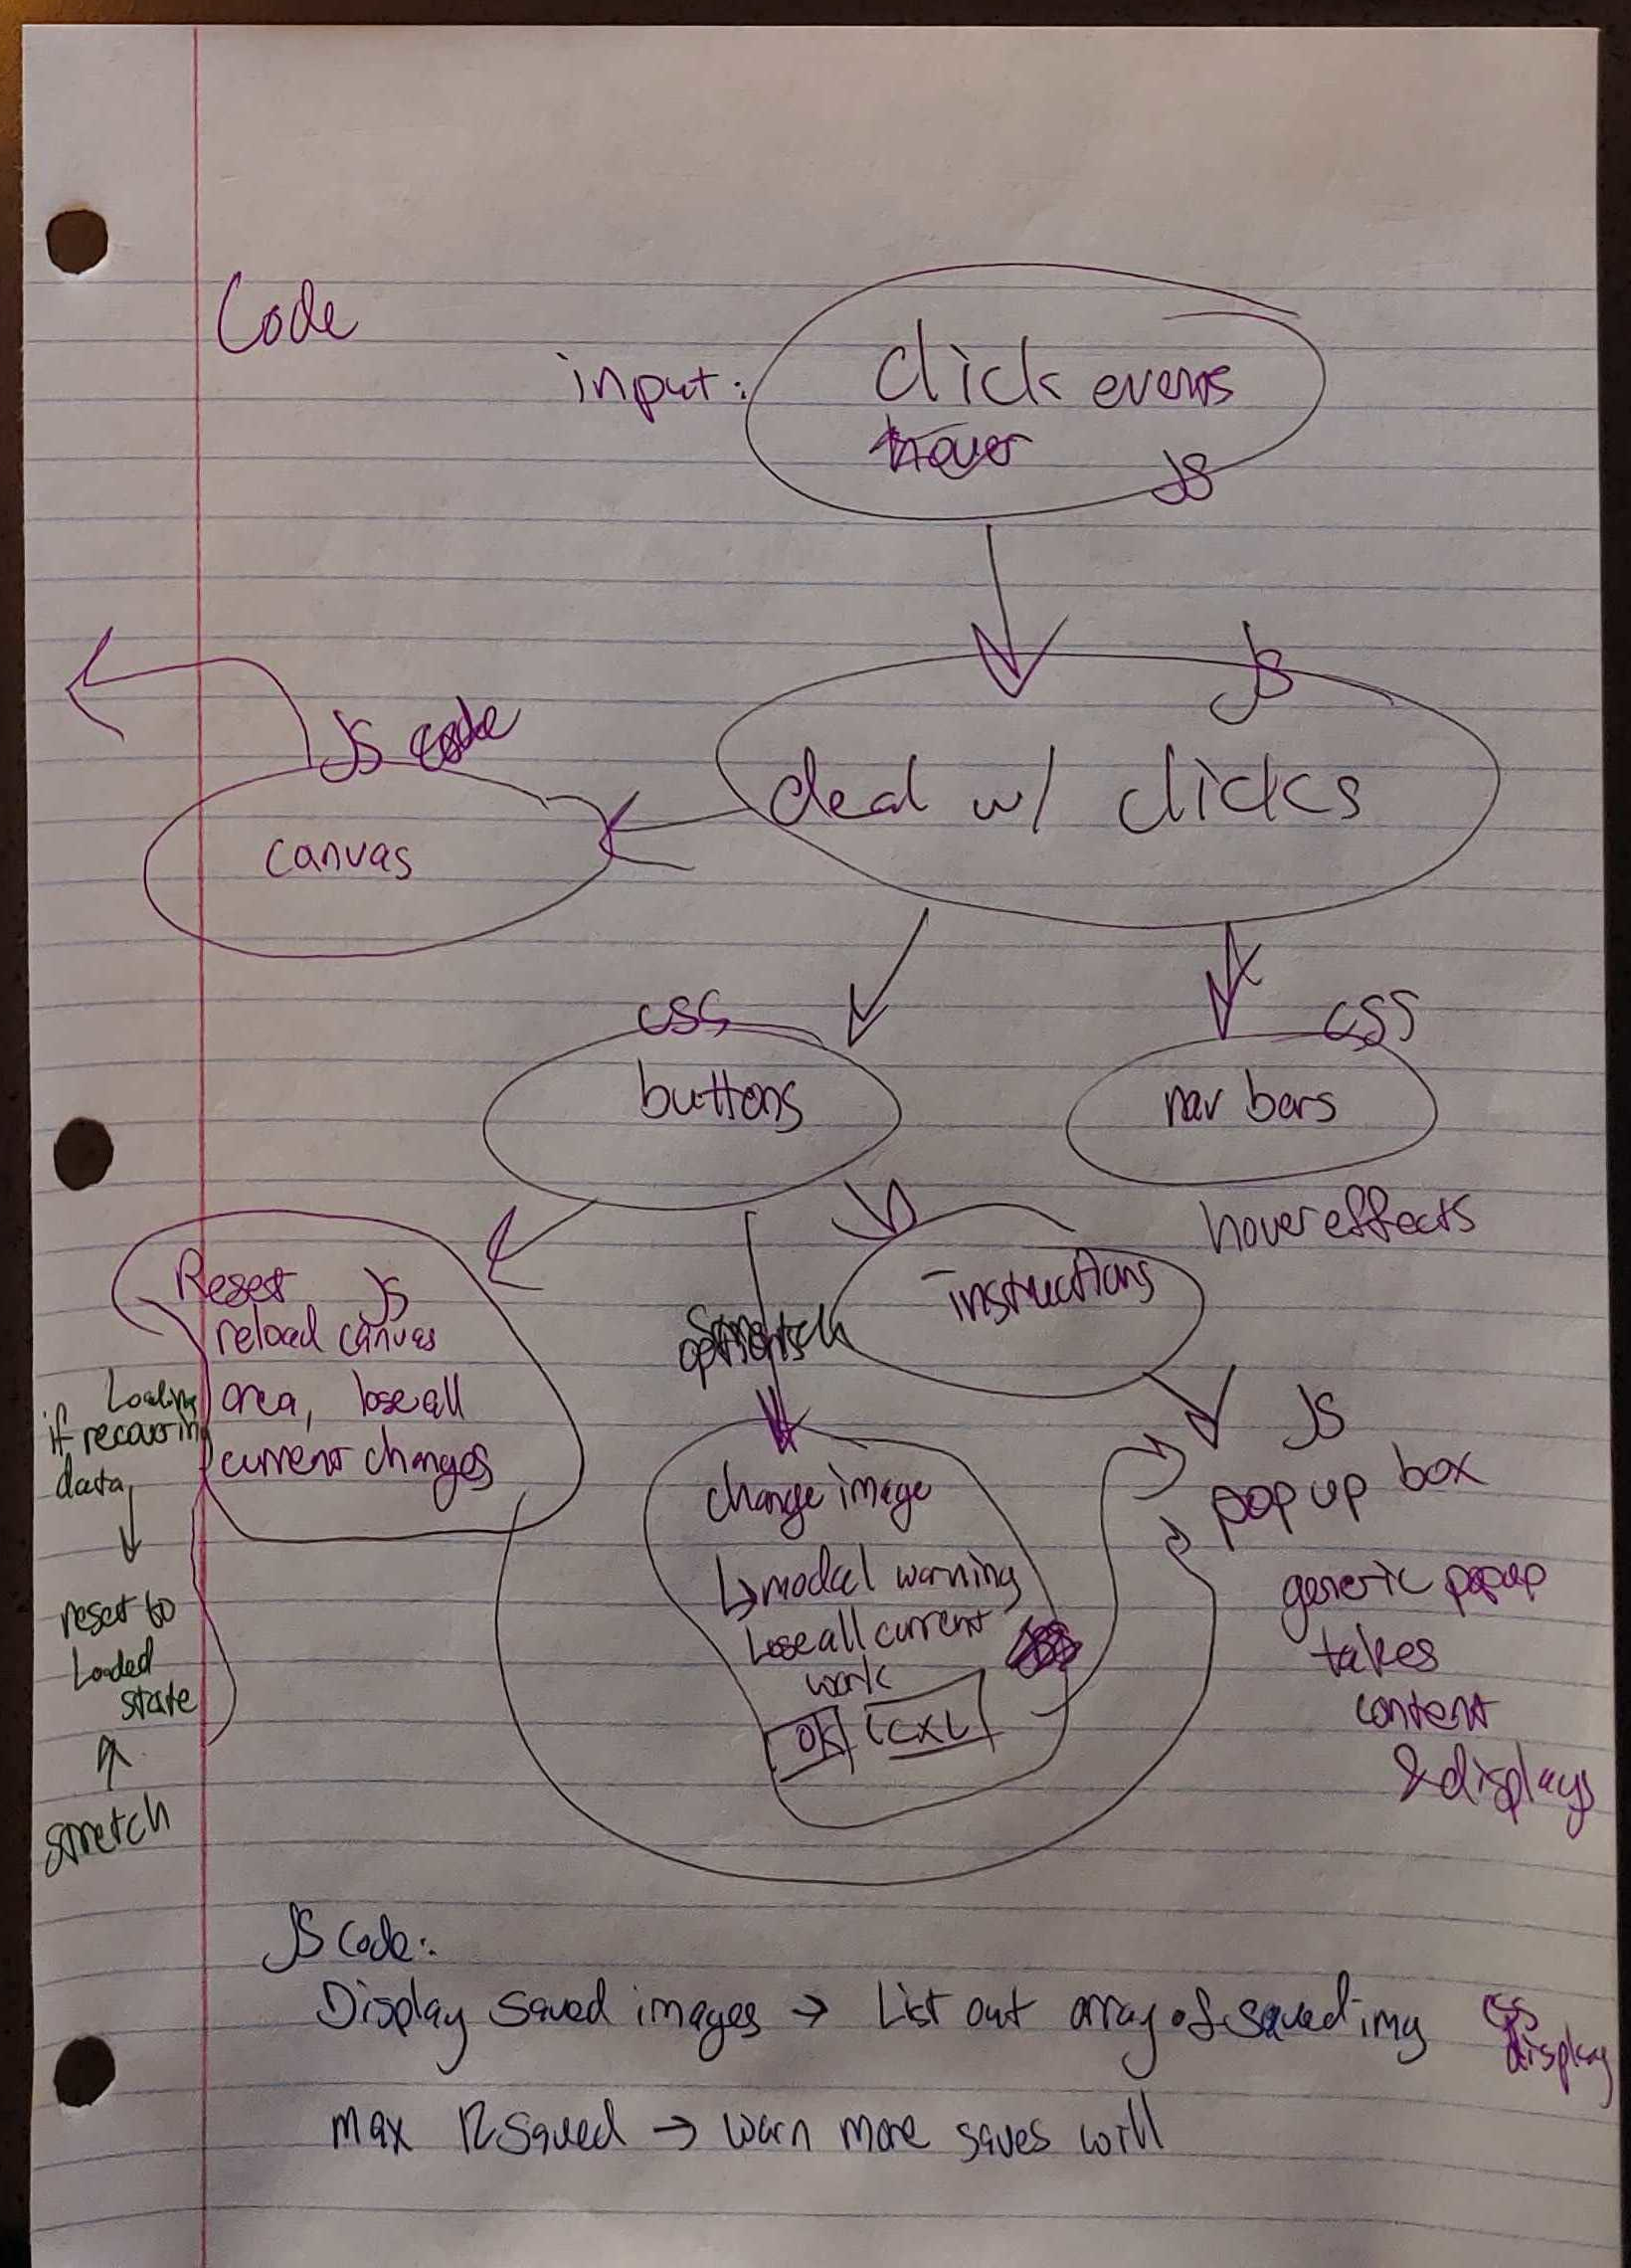 Code
input:
Click events
hover
JS
JS
deal w/ clicks
JS code
canvas
CSS
buttons
CSS
nav bars
hover effects
Reset JS
reload canvas
area, lose all
current changes
Loading
if recurring
data
reset to
Loaded
state
stretch
instructions
change image
↳ modal warning
Lose all current
work
OK CXL
JS
pop up box
generic popup
takes
content
& displays
JS Code:
Display saved images → List out array of saved img
CSS
display
max 12 saved → warn more saves will